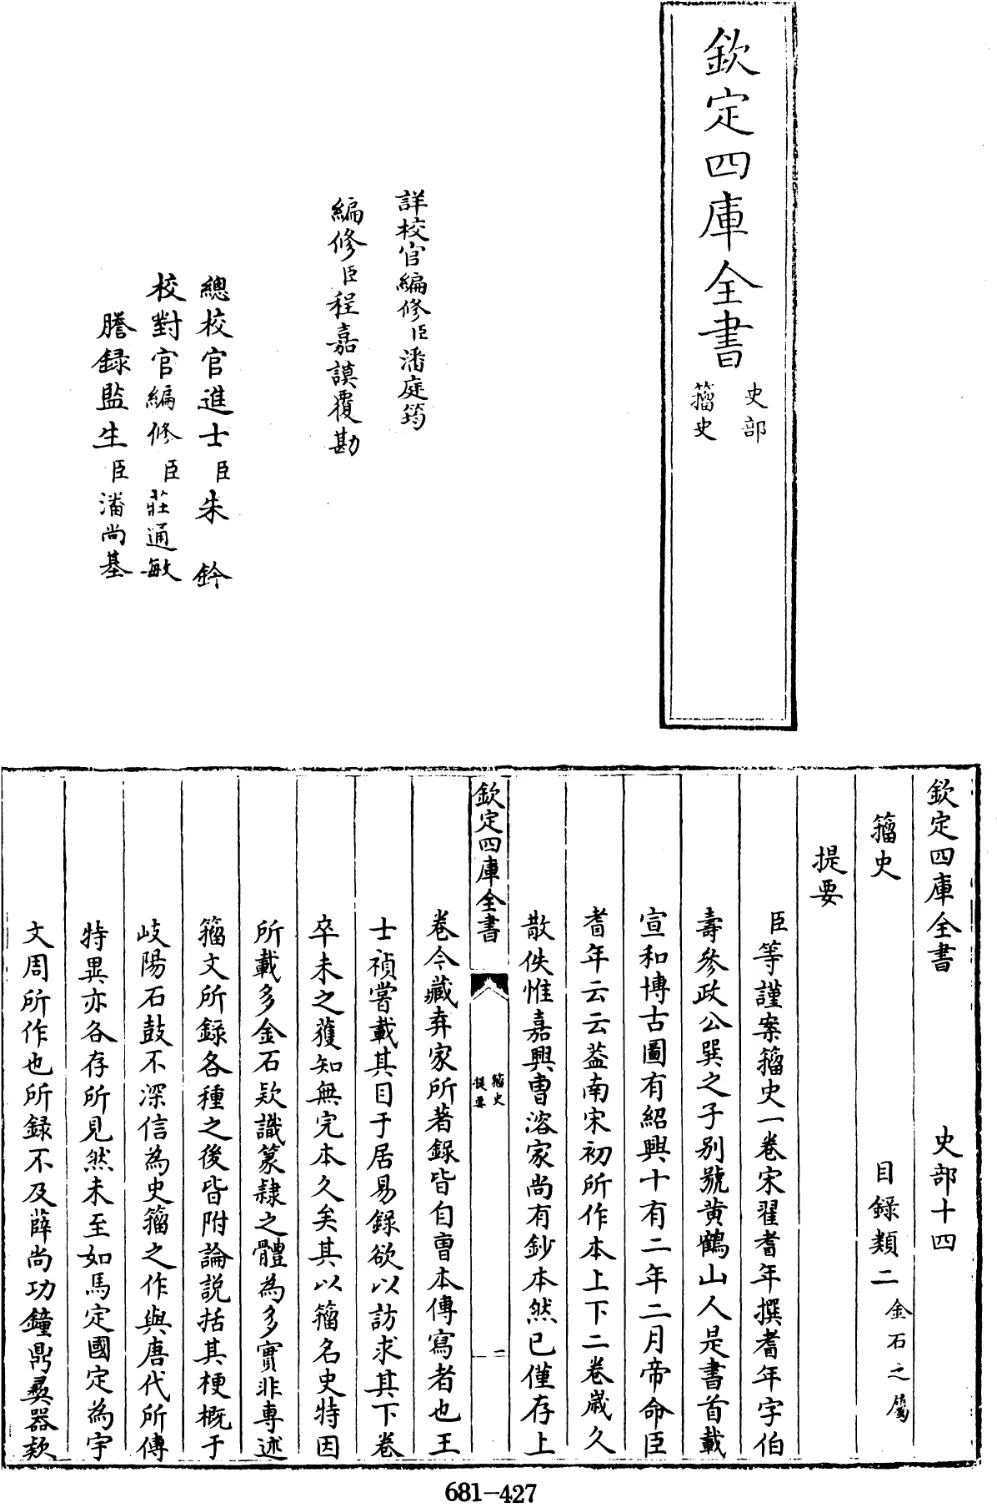 欽定四庫全書
史部
籀史
詳校官編修臣潘庭筠
編修臣程嘉謨覆勘
總校官進士臣朱鈐
校對官編修臣莊通敏
謄録監生臣潘尚基
欽定四庫全書 史部十四
籀史 目録類二金石之屬
提要
臣等謹案籀史一卷宋翟耆年撰耆年字伯
壽參政公巽之子别號黄鶴山人是書首載
宣和博古圖有紹興十有二年二月帝命臣
耆年云云葢南宋初所作本上下二卷嵗久
散佚惟嘉興曹溶家尚有鈔本然已僅存上
欽定四庫全書
籀史
提要
一
卷今藏弆家所著錄皆自曹本傳寫者也王
士禎嘗載其目于居易録欲以訪求其下卷
卒未之獲知無完本久矣其以籀名史特因
所載多金石欵識篆隷之體為多實非專述
籀文所録各種之後皆附論説括其梗概于
岐陽石鼓不深信為史籀之作與唐代所傳
特異亦各存所見然未至如馬定國定為宇
文周所作也所録不及薛尚功鐘鼎彞器欵
681-427